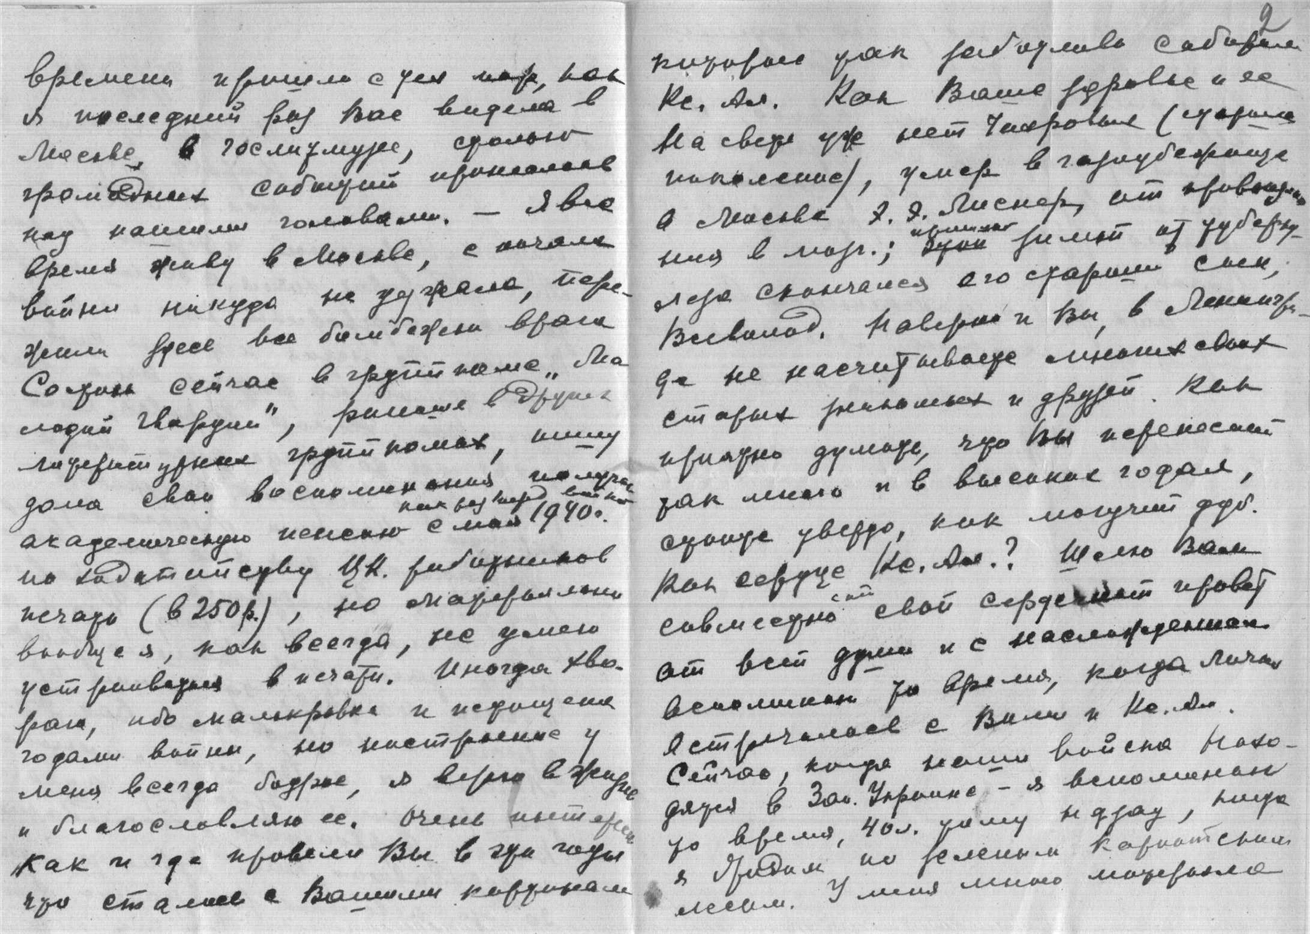 времени прошло с тех пор, как
я последний раз Вас видела в
Москве, в Гослитмузее, столько
громадных событий пронеслось
над нашими головами. – Я все
время живу в Москве, с начала
войны никуда не уезжала, пере-
жила здесь все бомбежки врага
Состою сейчас в группкоме „Мо
лодой Гвардии", раньше в других
литературных группкомах, пишу
дома свои воспоминания, получаю
как раз перед войной
академическую пенсию с мая 1940 г.
по ходатайству ЦК. работников
печати (в 250 р.), но материально
вообще я, как всегда, не умею
устраиваться в печати. Иногда хво-
раю, ибо малокровна и истощена
годами войны, но настроение у
меня всегда бодрое, я верю в жизнь
и благословляю ее. Очень интересно
как и где провели Вы в эти годы
что сталось с Вашими картинами
2
которые так заботливо собирала
Кс. Ал. Как Ваше здоровье и ее
На свете уж нет (старшее
поколение), умер в
а Москве от кровоизлия
ния в мозг.; прошлой зимой от туберку-
леза скончался его старший сын,
Всеволод. Наверно и Вы, в Ленингра-
де не насчитываете многих своих
старых знакомых и друзей. Как
приятно думать, что Вы перенесший
так много и в высоких годах,
стоите твердо, как могучий дуб.
Как сердце Кс. Ал.? Шлю Вам
совместно свой сердечный привет
от всей души и с наслаждением
вспоминаю то время, когда лично
встречалась с Вами и Кс. Ал.
Сейчас, когда наши войска нахо-
дятся в Зап. Украине – я вспоминаю
то время, 40 л. тому назад, когда
я бродила по зеленым карпатским
лесам. У меня много материала